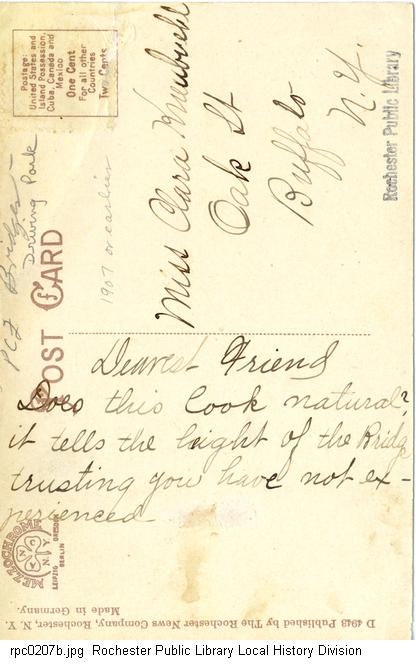 Postage:
United States and
Island Possession,
Cuba, Canada and
Mexico
One Cent
For all other
Countries
Two Cents
Miss Clara
Oak St
Buffalo
N. Y.
Rochester Public Library
PCZ Bridges -
Driving Park
1907 or earlier
POST CARD
Dearest Friend
Does this look natural?
it tells the hight of the Bridge
trusting you have not ex-
perienced
MEZZOCHROME
C N Y
LEIPZIG BERLIN DRESDEN
D 4943 Published by The Rochester News Company, Rochester, N. Y.
Made in Germany.
rpc0207b.jpg Rochester Public Library Local History Division